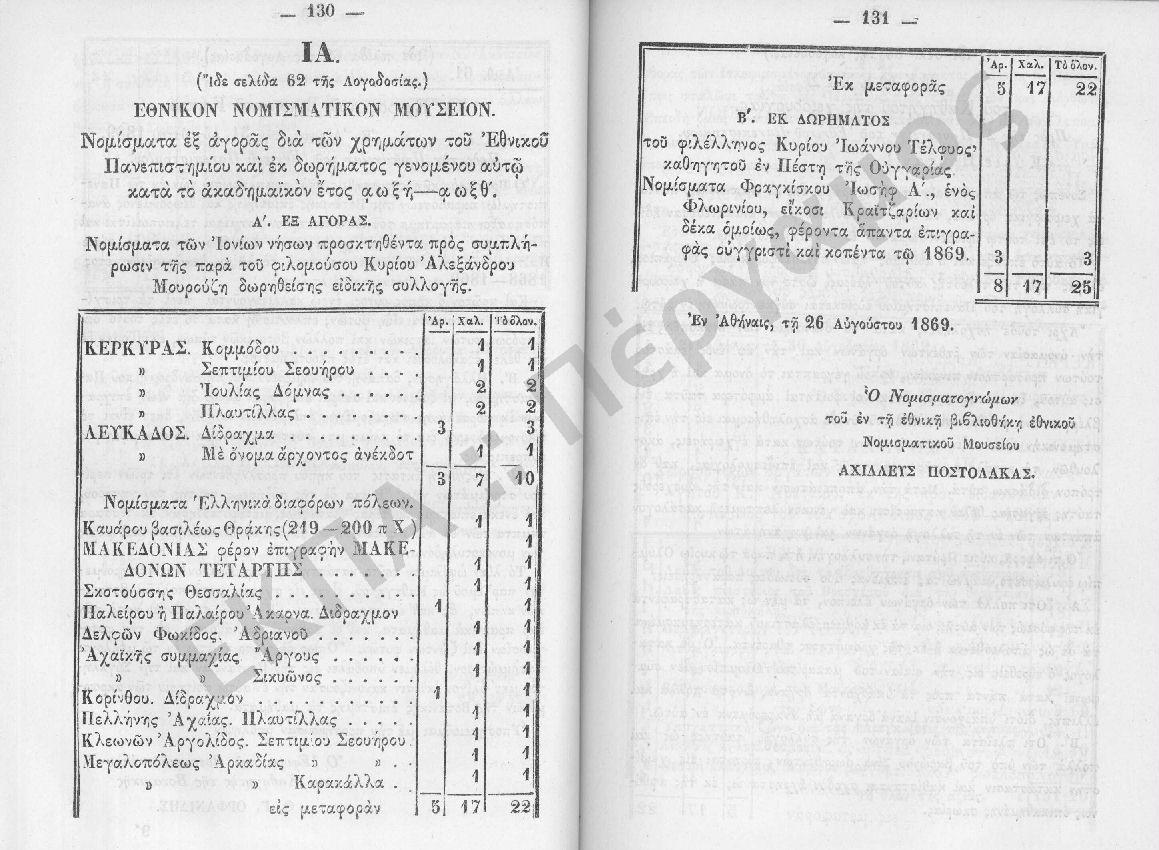 — 130 —
ΙΑ.
(Ἴδε σελίδα 62 τῆς Λογοδοσίας.)
ΕΘΝΙΚΟΝ ΝΟΜΙΣΜΑΤΙΚΟΝ ΜΟΥΣΕΙΟΝ.
Νομίσματα ἐξ ἀγορᾶς διὰ τῶν χρημάτων τοῦ Ἐθνικοῦ
Πανεπιστημίου καὶ ἐκ δωρήματος γενομένου αὐτῷ
κατὰ τὸ ἀκαδημαϊκὸν ἔτος αωξή—αωξθ'.
Α'. ΕΞ ΑΓΟΡΑΣ.
Νομίσματα τῶν Ἰονίων νήσων προσκτηθέντα πρὸς συμπλή-
ρωσιν τῆς παρὰ τοῦ φιλομούσου Κυρίου Ἀλεξάνδρου
Μουρούζη δωρηθείσης εἰδικῆς συλλογῆς.
Ἀρ. Χαλ. Τὸ ὅλον.
ΚΕΡΚΥΡΑΣ. Κομμόδου . . . . . . . . . 1 1
» Σεπτιμίου Σεουήρου . . . . 1 1
» Ἰουλίας Δόμνας . . . . . . 2 2
» Πλαυτίλλας . . . . . . . . 2 2
ΛΕΥΚΑΔΟΣ. Δίδραχμα . . . . . . . . . 3 3
» Μὲ ὄνομα ἄρχοντος ἀνέκδοτ 1 1
3 7 10
Νομίσματα Ἑλληνικὰ διαφόρων πόλεων.
Καυάρου βασιλέως Θράκης (219—200 π Χ) 1 1
ΜΑΚΕΔΟΝΙΑΣ φέρον ἐπιγραφὴν ΜΑΚΕ-
ΔΟΝΩΝ ΤΕΤΑΡΤΗΣ . . . . . . . 1 1
Σκοτούσσης Θεσσαλίας . . . . . . . . . 1 1
Παλείρου ἢ Παλαίρου Ἀκαρνα. Δίδραχμον 1 1
Δελφῶν Φωκίδος. Ἀδριανοῦ . . . . . . 1 1
Ἀχαϊκῆς συμμαχίας Ἄργους . . . . . . 1 1
» » Σικυῶνος . . . . . 1 1
Κορίνθου. Δίδραχμον . . . . . . . . . . 1 1
Πελλήνης Ἀχαίας. Πλαυτίλλας . . . . . 1 1
Κλεωνῶν Ἀργολίδος. Σεπτιμίου Σεουήρου. 1 1
Μεγαλοπόλεως Ἀρκαδίας » » . . 1 1
» » Καρακάλλα . . 1 1
εἰς μεταφορὰν 5 17 22
— 131 —
Ἀρ. Χαλ. Τὸ ὅλον.
Ἐκ μεταφορᾶς 5 17 22
Β'. ΕΚ ΔΩΡΗΜΑΤΟΣ
τοῦ φιλέλληνος Κυρίου Ἰωάννου Τέλφυος,
καθηγητοῦ ἐν Πέστῃ τῆς Οὑγγαρίας.
Νομίσματα Φραγκίσκου Ἰωσὴφ Α'., ἑνὸς
Φλωρινίου, εἴκοσι Κραϊτζαρίων καὶ
δέκα ὁμοίως, φέροντα ἅπαντα ἐπιγρα-
φὰς οὑγγριστὶ καὶ κοπέντα τῷ 1869. 3 3
8 17 25
Ἐν Ἀθήναις, τῇ 26 Αὐγούστου 1869.
Ὁ Νομισματογνώμων
τοῦ ἐν τῇ ἐθνικῇ βιβλιοθήκῃ ἐθνικοῦ
Νομισματικοῦ Μουσείου
ΑΧΙΛΛΕΥΣ ΠΟΣΤΟΛΑΚΑΣ.
ΕΚΠΑ : Πέργαμος